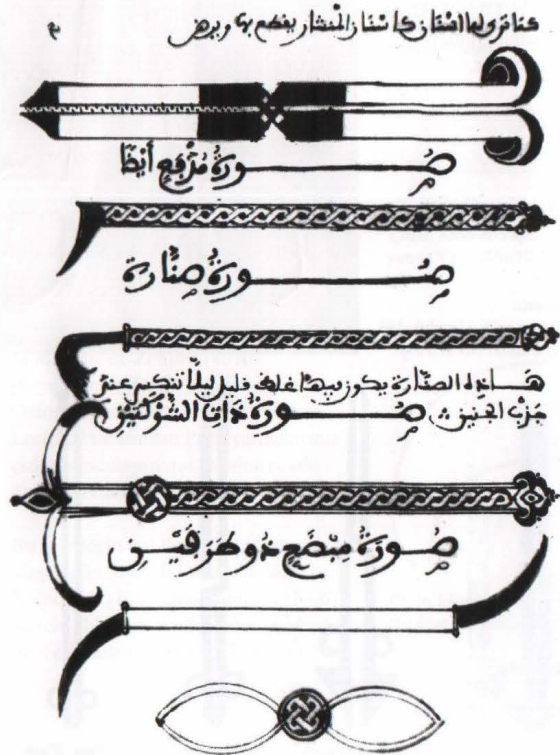 كما ترى ولها اسنان كاسنان المنشار يقطع بها ويرض
صورة مدفع أيضا
صورة صنّارة
هاذه الصنّارة يكون فيها غلظ قليل ليلا تنكسر عند
جذب الجنين صورة ذات الشوكتين
صورة مبضع ذو طرفين